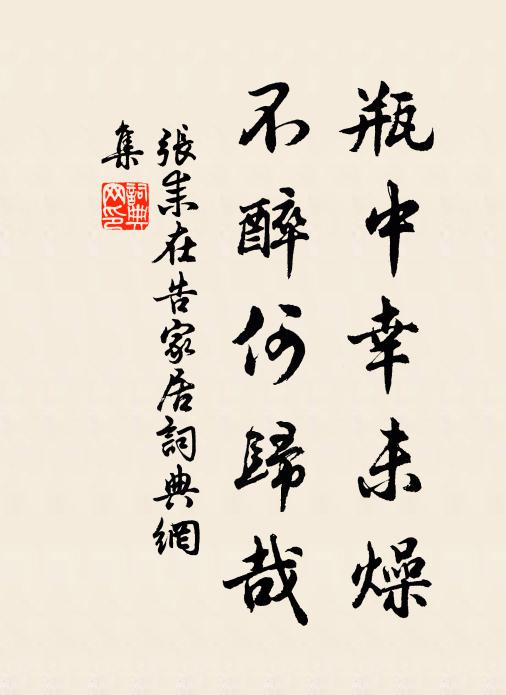 瓶中幸未燥
不醉何歸哉
張耒在告家居詞典網
集
詞典
网印